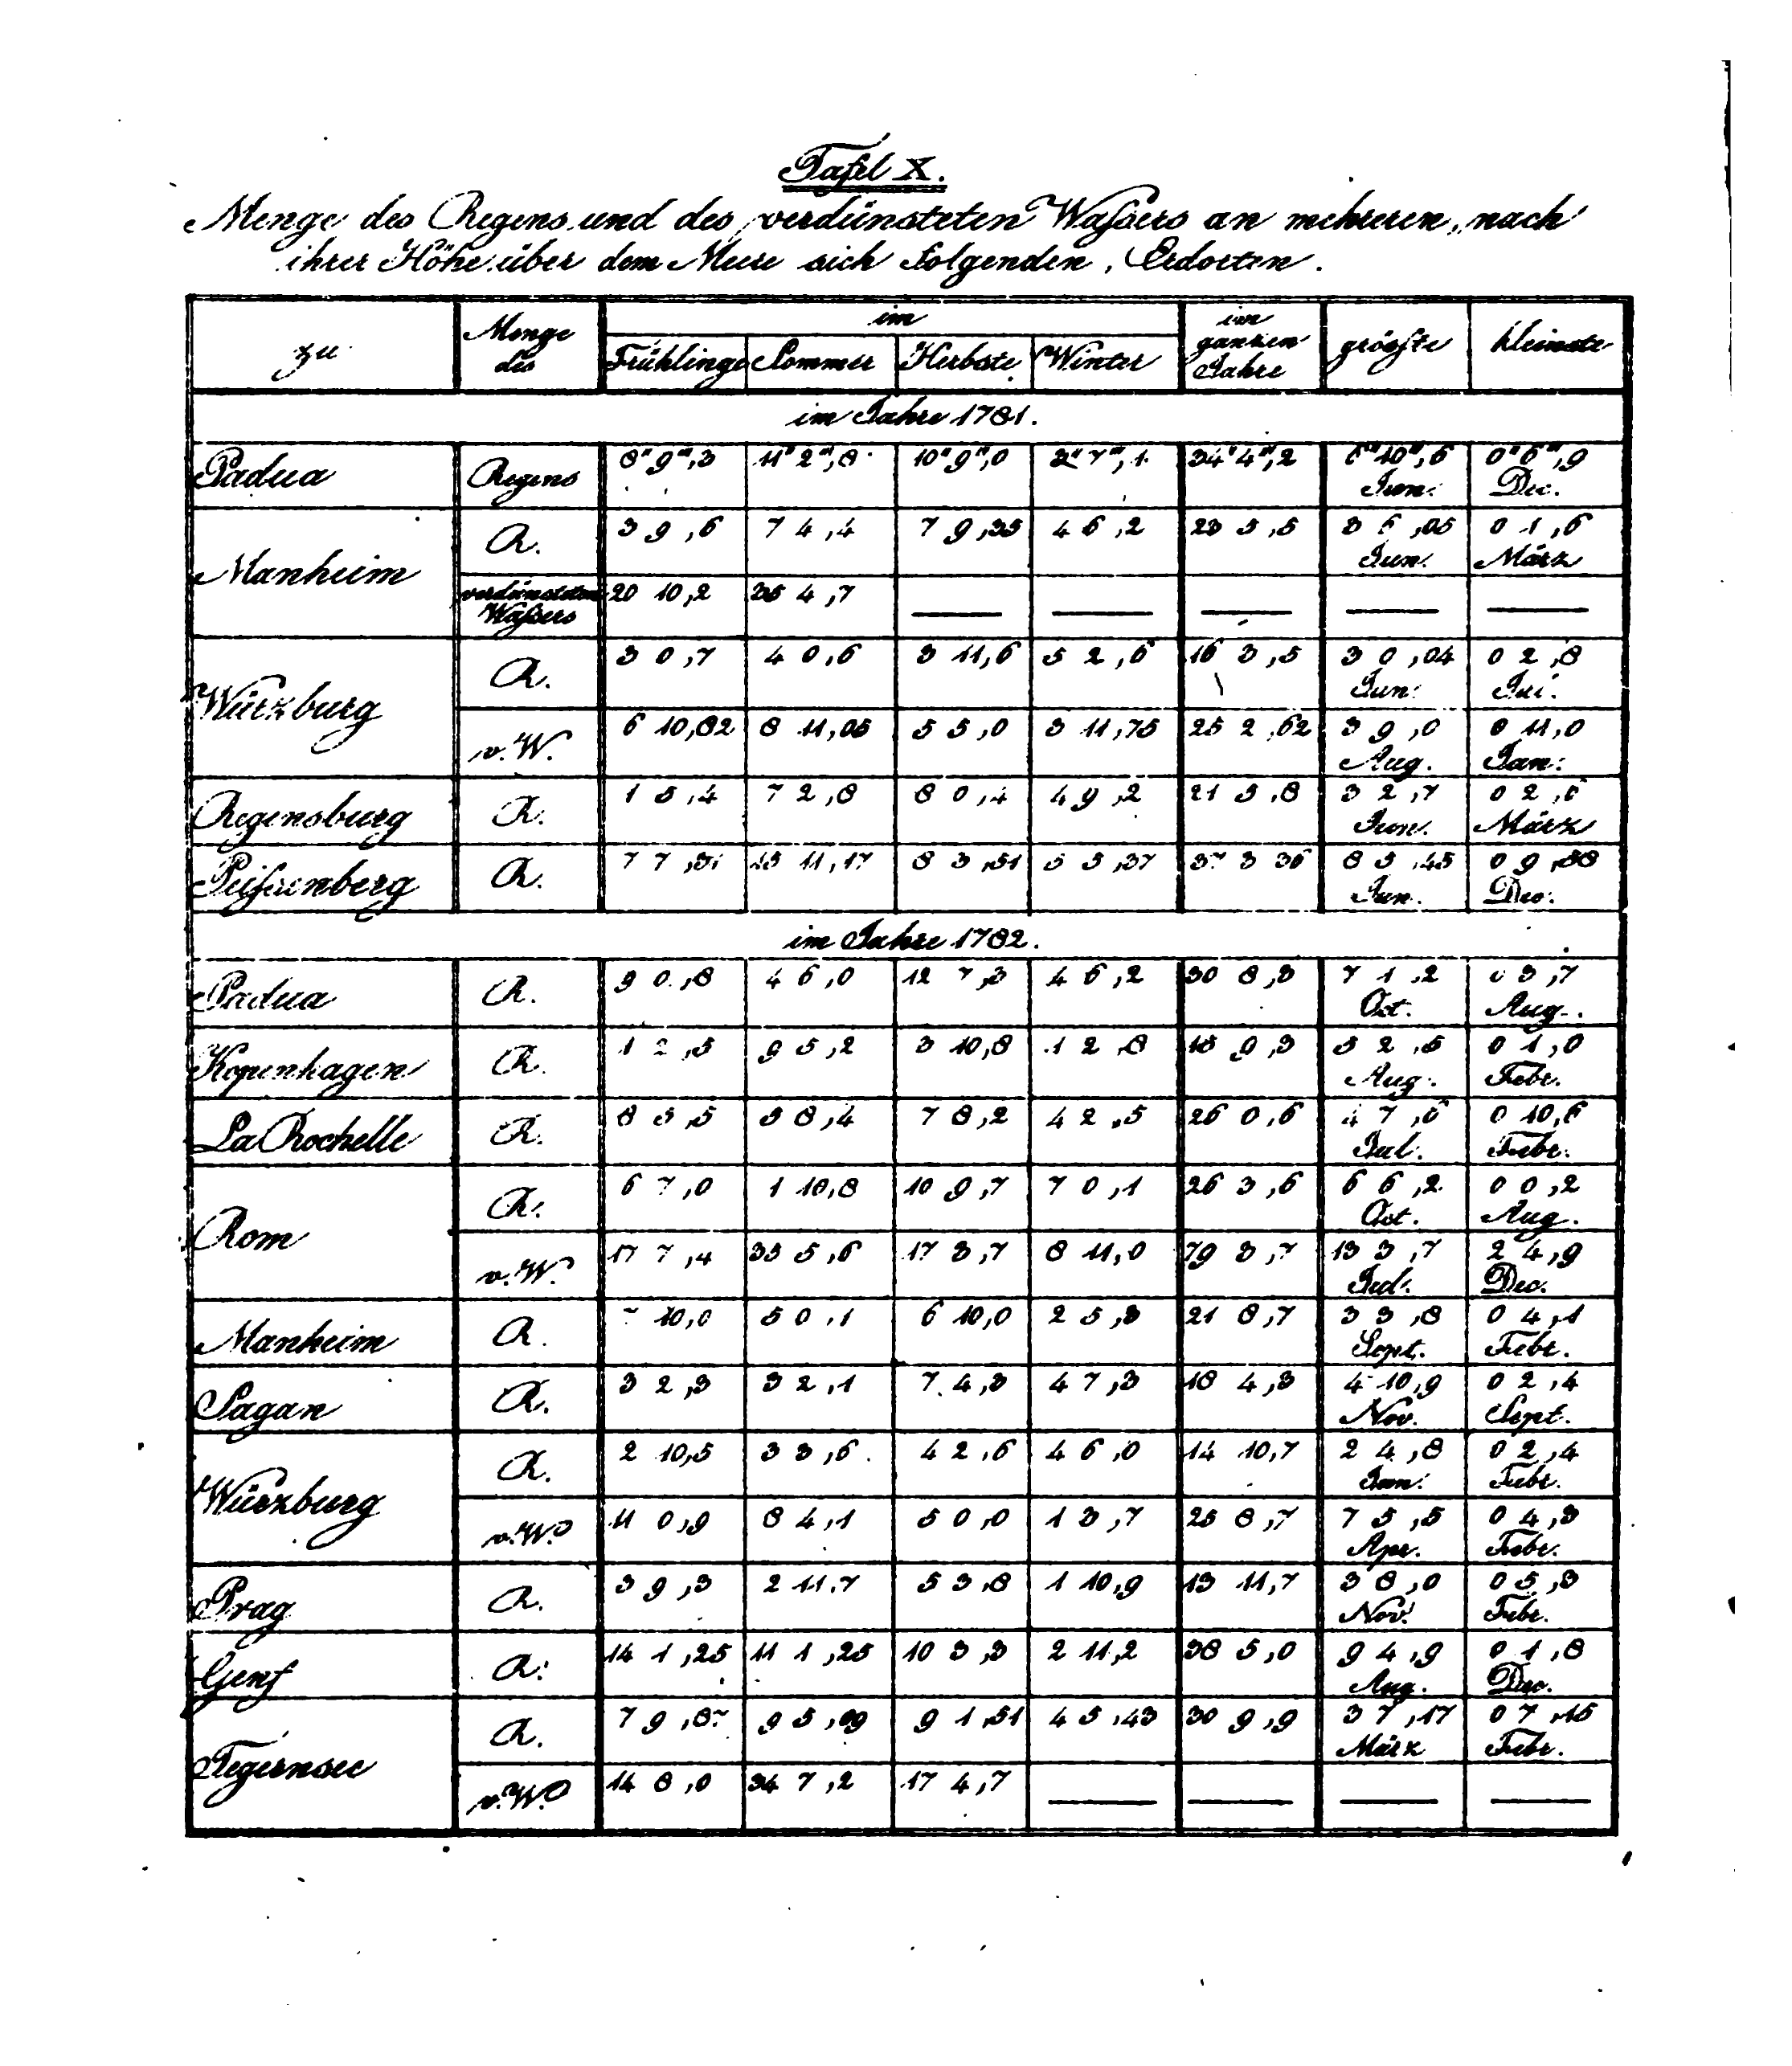 Tafel X.
Menge des Regens und des verdünsteten Waſsers an mehreren, nach
ihrer Höhe über dem Meere sich folgenden, Erdorten.
zu Menge des im im ganzen Jahre gröſste kleinste
Frühlinge Sommer Herbste Winter
im Jahre 1781.
Padua Regens 8"9''',3 11"2''',8 10"9''',0 3"7''',1 34"4''',2 6"10''',6 0"6''',9
Jun: Dec.
Manheim R. 3 9,6 7 4,4 7 9,35 4 6,2 23 5,5 3 6,05 0 1,6
Jun. März
verdünsteten Waſsers 20 10,2 35 4,7 — — — — —
Würzburg R. 3 0,7 4 0,6 3 11,6 5 2,6 16 3,5 3 0,04 0 2,8
Jun: Jul.
v. W. 6 10,82 8 11,05 5 5,0 3 11,75 25 2,62 3 9,0 0 11,0
Aug. Jan:
Regensburg R. 1 5,4 7 2,8 8 0,4 4 9,2 21 5,8 3 2,7 0 2,6
Jun. März
Peiſsenberg R. 7 7,31 15 11,17 8 3,51 5 5,37 37 3 36 8 5,45 0 9,38
Jun. Dec:
im Jahre 1782.
Padua R. 9 0,8 4 6,0 12 7,3 4 6,2 30 8,3 7 1,2 0 3,7
Oct. Aug.
Kopenhagen R. 1 2,5 9 5,2 3 10,8 1 2,8 15 9,3 5 2,5 0 1,0
Aug. Febr.
La Rochelle R. 8 5,5 5 8,4 7 8,2 4 2,5 26 0,6 4 7,6 0 10,6
Jul. Febr.
Rom R. 6 7,0 1 10,8 10 9,7 7 0,1 26 3,6 6 6,2 0 0,2
Oct. Aug.
v. W. 17 7,4 35 5,6 17 3,7 8 11,0 79 3,7 13 3,7 2 4,9
Jul. Dec.
Manheim R. 7 10,0 5 0,1 6 10,0 2 5,3 21 8,7 3 3,8 0 4,1
Sept. Febr.
Sagan R. 3 2,3 3 2,1 7 4,3 4 7,3 18 4,3 4 10,9 0 2,4
Nov. Sept.
Würzburg R. 2 10,5 3 3,6 4 2,6 4 6,0 14 10,7 2 4,8 0 2,4
Jan: Febr.
v. W. 11 0,9 8 4,1 5 0,0 1 3,7 25 8,7 7 5,5 0 4,3
Apr. Febr.
Prag R. 3 9,3 2 11,7 5 3,8 1 10,9 13 11,7 3 8,0 0 5,3
Nov. Febr.
Genf R. 14 1,25 11 1,25 10 3,3 2 11,2 38 5,0 9 4,9 0 1,8
Aug. Dec.
Tegernsee R. 7 9,87 9 5,09 9 1,51 4 5,43 30 9,9 3 7,17 0 7,15
März Febr.
v. W. 14 8,0 34 7,2 17 4,7 — — — —